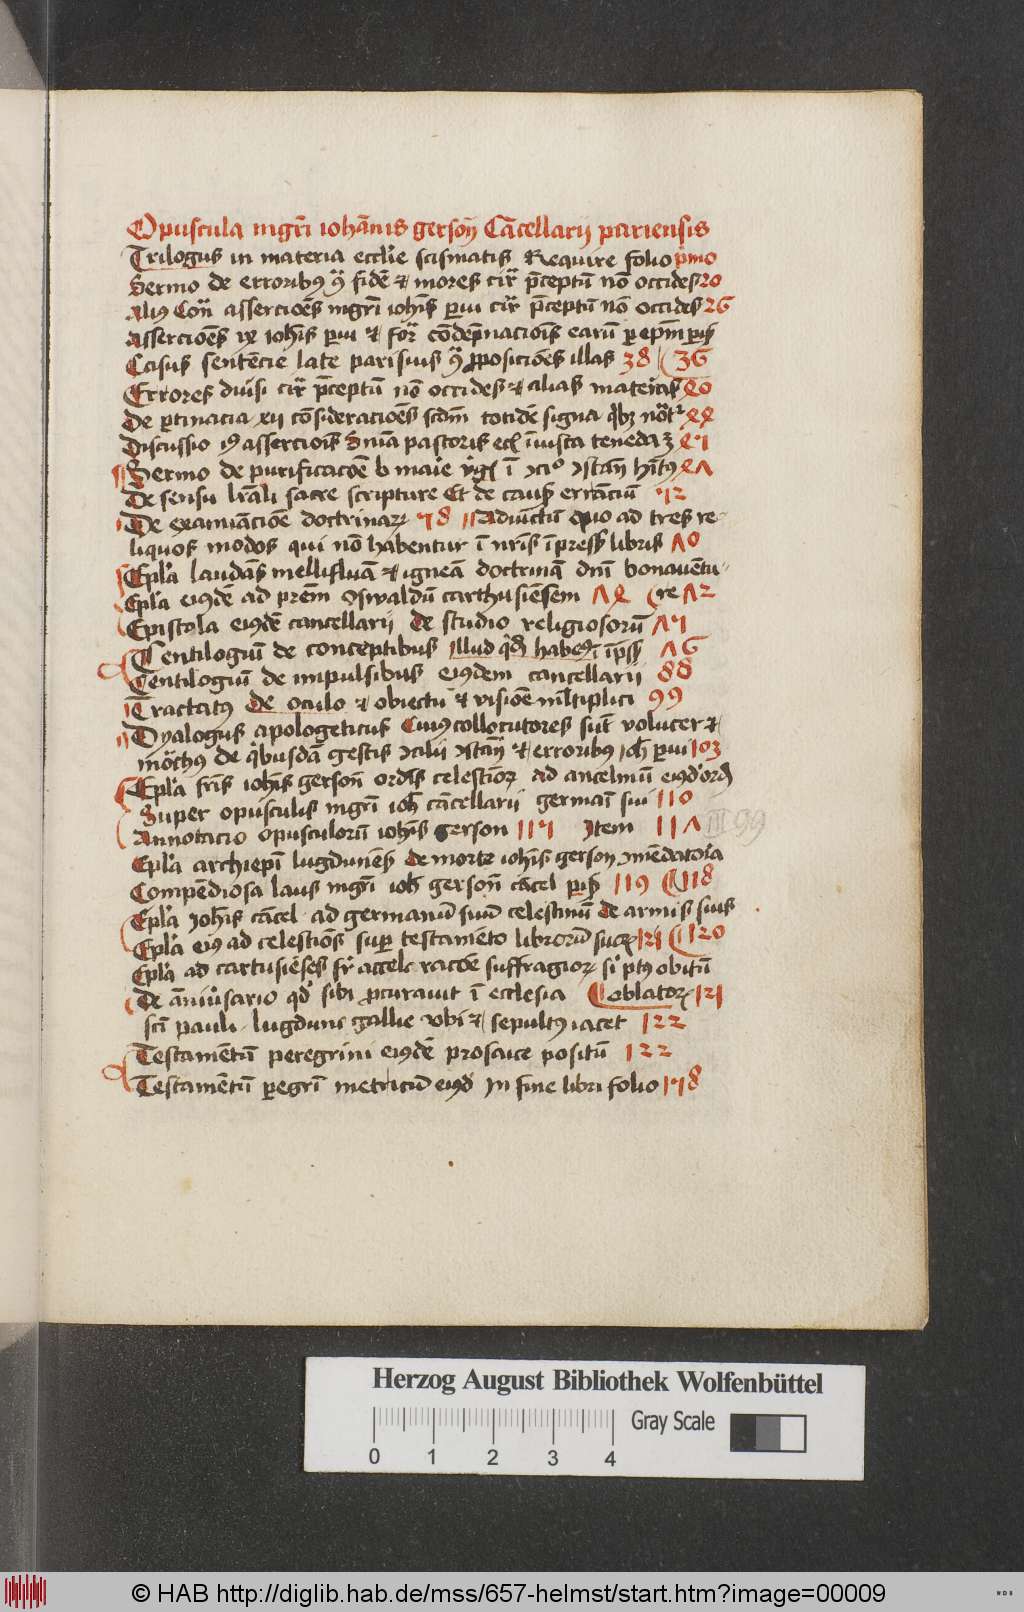 Opuscula mgr̄i ioha͞nis gerson̄ Ca͞cellarij pariensis
Trilogus in materia eccl'ie scismatis Require folio p̄mo
Sermo de erroribus fidē et mores cir̄ p̄ceptū nō occides 20
Alius assercioēs mgr̄i ioh̄is pui cir̄ p̄ceptū nō occides 26
Assercioēs ix ioh̄is pui et for̄ cōdēpnacionis earū
Casus sentēcie late parisius proposicioēs illas 38 36
Errores du̇si cir̄ p̄ceptū nō occides et alias materias 40
De ptinacia xii cōsideracioēs scdm̄ totidē signa 44
Discussio assercionis pastoris eccl' iniusta teneda 47
Sermo de purificacōe b marie 4Λ
De sensu lr̄ali sacre scripture Et de causis errānciū 72
De examīacōe doctrinarꝝ 78 Adiūctū quo ad tres re
liquos modos qui nō habentur ī nr̄is īpress̄ libris Λ0
Epl'a laudās mellifluā et igneā doctrinā dn̄i bonavētu
Epl'a eiusdē ad p̄rem Oswaldū carthusiēsem Λ4 re Λ2
Epistola eiusdē cancellarij de studio religiosorū Λ7
Centilogiū de conceptibus illud habes īp̄ss̄ Λ6
Centilogiū de impulsibus eiusdem cancellarij 88
Tractatus de oculo et obiectu et visiōe ml̄tiplici 99
Dyalogus apologeticus Cuius collocutores sūt volucer et
mōchus de q'busdā gestis cōcilii cōstan̄ et erroribus ioh̄ pui 103
Epl'a fr̄is ioh̄is gerson̄ ordīs celestīorꝝ ad ancelmū eiusd' ord'
Super opusculis mgr̄i ioh̄ cācellarij germāi sui 110
Annotacio opusculorū ioh̄is gerson 117 Item 11Λ III 99
Epl'a archiep̄i lugdunēs de morte ioh̄is gerson cōmēdatoria
Compēdiosa laus mgr̄i ioh̄ gerson̄ cācel paris̄ 119 118
Epl'a Ioh̄is cācel ad germanū suū celestinū de armis suis
Epl'a eius ad celestīos sup testamēto librorū suorꝝ 121 120
Epl'a ad cartusiēses suffragiorꝝ obitū
De āniu̇sario qd' sibi p̄curavit ī ecclesia oblatorꝝ 121
sc̄i pauli lugduni gallie vbi et sepultus iacet 122
Testamētū peregrini eiusdē prosaice positū 122
Testamētū peregrī metricū eiusd' In fine libri folio 178
Herzog August Bibliothek Wolfenbüttel
Gray Scale
0 1 2 3 4
© HAB http://diglib.hab.de/mss/657-helmst/start.htm?image=00009